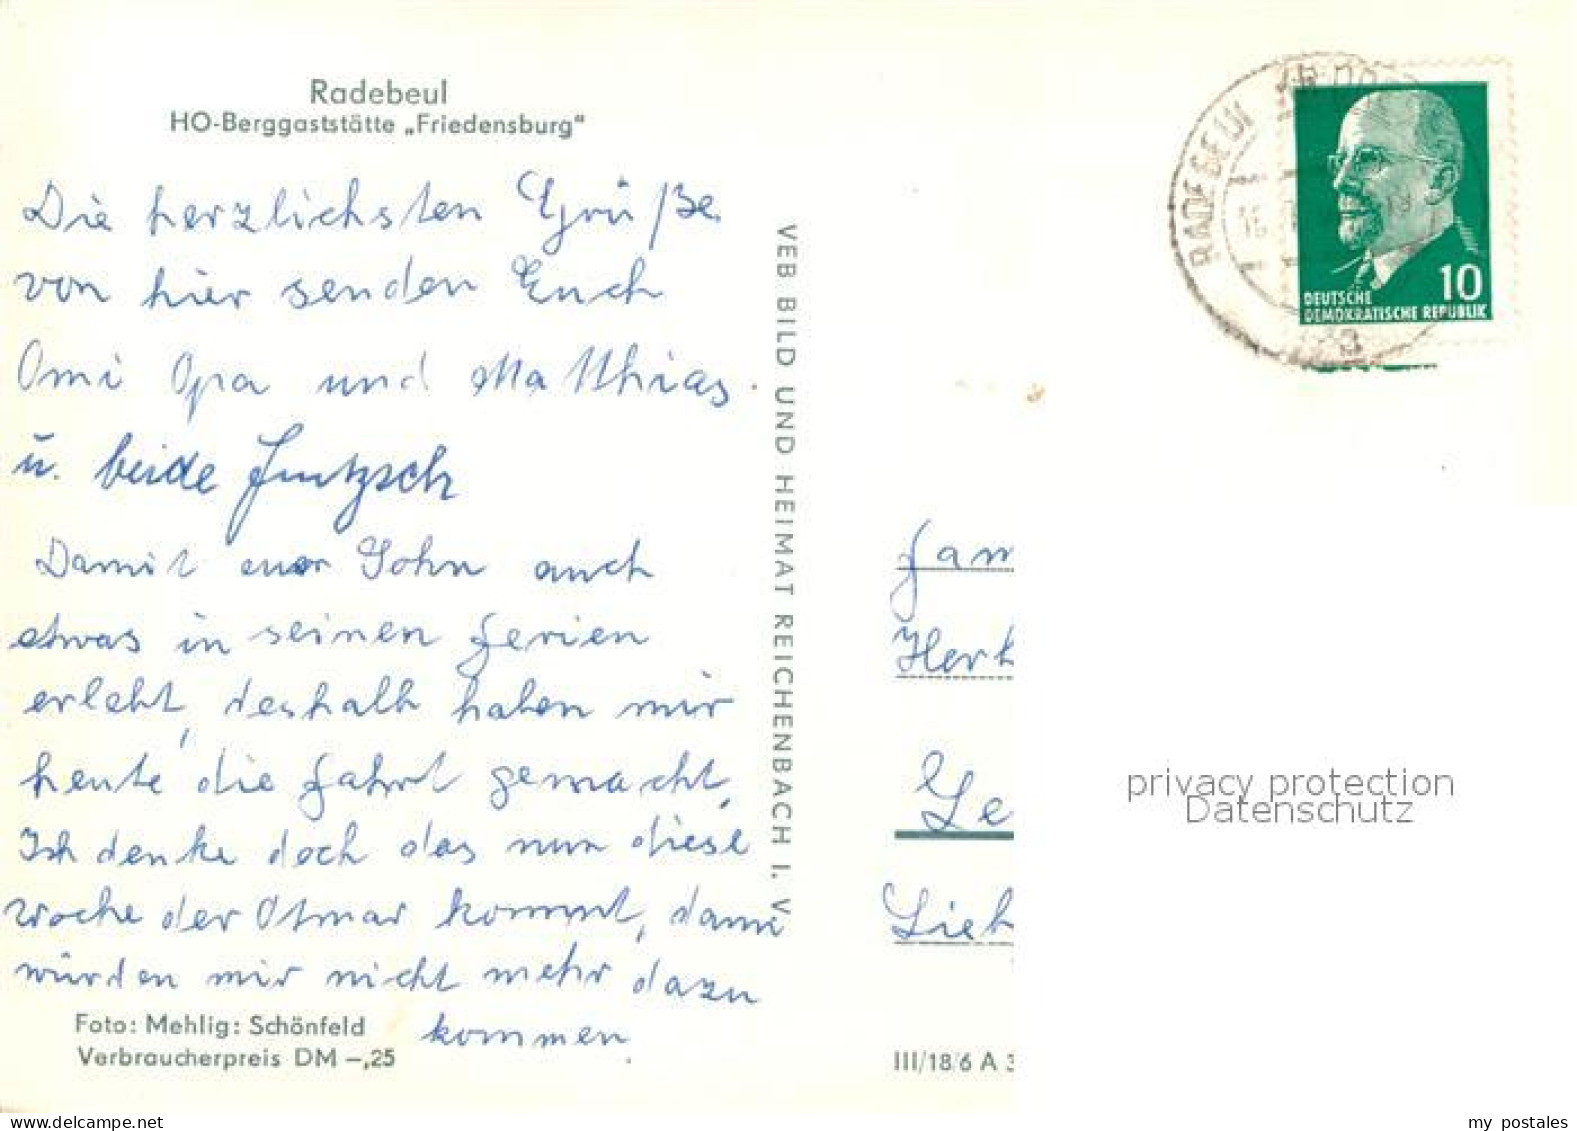 Radebeul
HO-Berggaststätte „Friedensburg"
Die herzlichsten Grüße
von hier senden Euch
Omi Opa und Matthias.
u. beide
Damit euer Sohn auch
etwas in seinen Ferien
erlebt, deshalb haben mir
heute die Fahrt gemacht,
Ich denke doch das nun diese
woche der Otmar kommt, dann
würden mir nicht mehr dazu
kommen.
Foto: Mehlig: Schönfeld
Verbraucherpreis DM –,25
VEB BILD UND HEIMAT REICHENBACH I. V
RADEBEUL
16.
a
10
DEUTSCHE
DEMOKRATISCHE REPUBLIK
Fam
Herk
Le
Lieb
III/18/6 A 3
privacy protection
Datenschutz
my postales